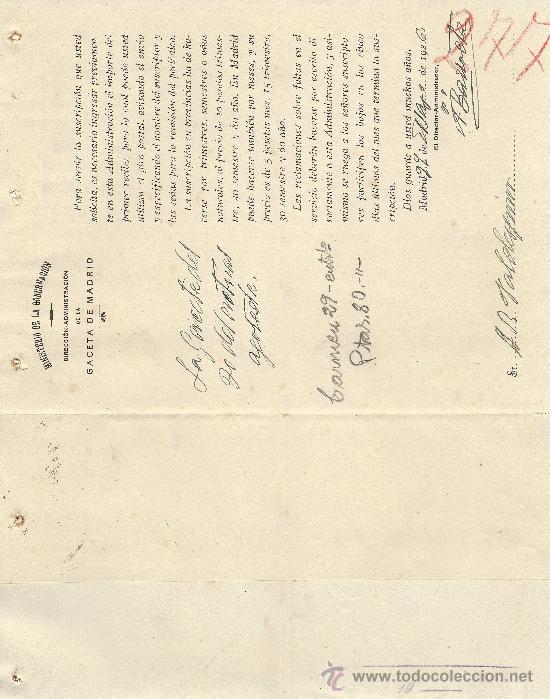 MINISTERIO DE LA GOBERNACIÓN
DIRECCIÓN-ADMINISTRACIÓN
DE LA
GACETA DE MADRID
Para servir la suscripción que usted
solicita, es necesario ingresar previamen-
te en esta Administración el importe del
primer recibo, para lo cual puede usted
utilizar el giro postal, avisando el envío
y especificando el nombre del suscriptor y
las señas para la remisión del periódico.
La suscripción en provincias ha de ha-
cerse por trimestres, semestres o años
naturales, al precio de 20 pesetas trimes-
tre, 40 semestre y 80 año. En Madrid
puede hacerse también por meses, y su
precio es de 5 pesetas mes, 15 trimestre,
30 semestre y 60 año.
Las reclamaciones sobre faltas en el
servicio deberán hacerse por escrito di-
rectamente a esta Administración, y asi-
mismo se ruega a los señores suscripto-
res participen las bajas en los cinco
días últimos del mes que termina la sus-
cripción.
Dios guarde a usted muchos años.
Madrid de de 192
El Director-Administrador,
La Gaceta del
Carmen 29-entlo
Ptas. 80.-"
Sr.
717
10
todocoleccion
www.todocoleccion.net